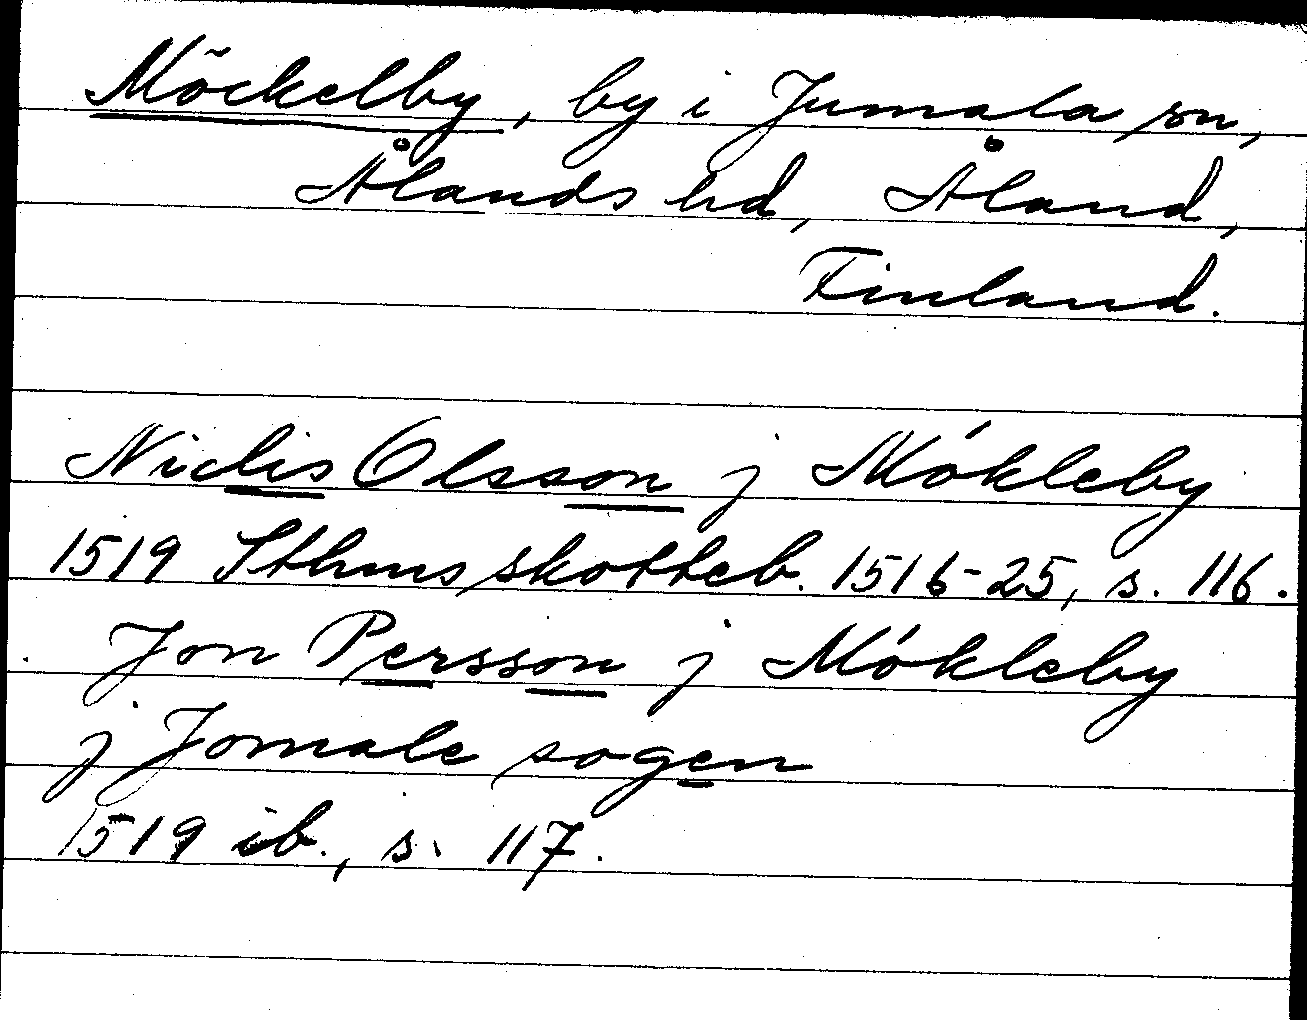 Möckelby, by i Jumala sn,
Ålands hd, Åland,
Finland.
Niclis Olsson j Mókleby
1519 Sthms skotteb. 1516-25, s. 116.
Jon Persson j Mókleby
j Jomale sogen
1519 ib., s. 117.